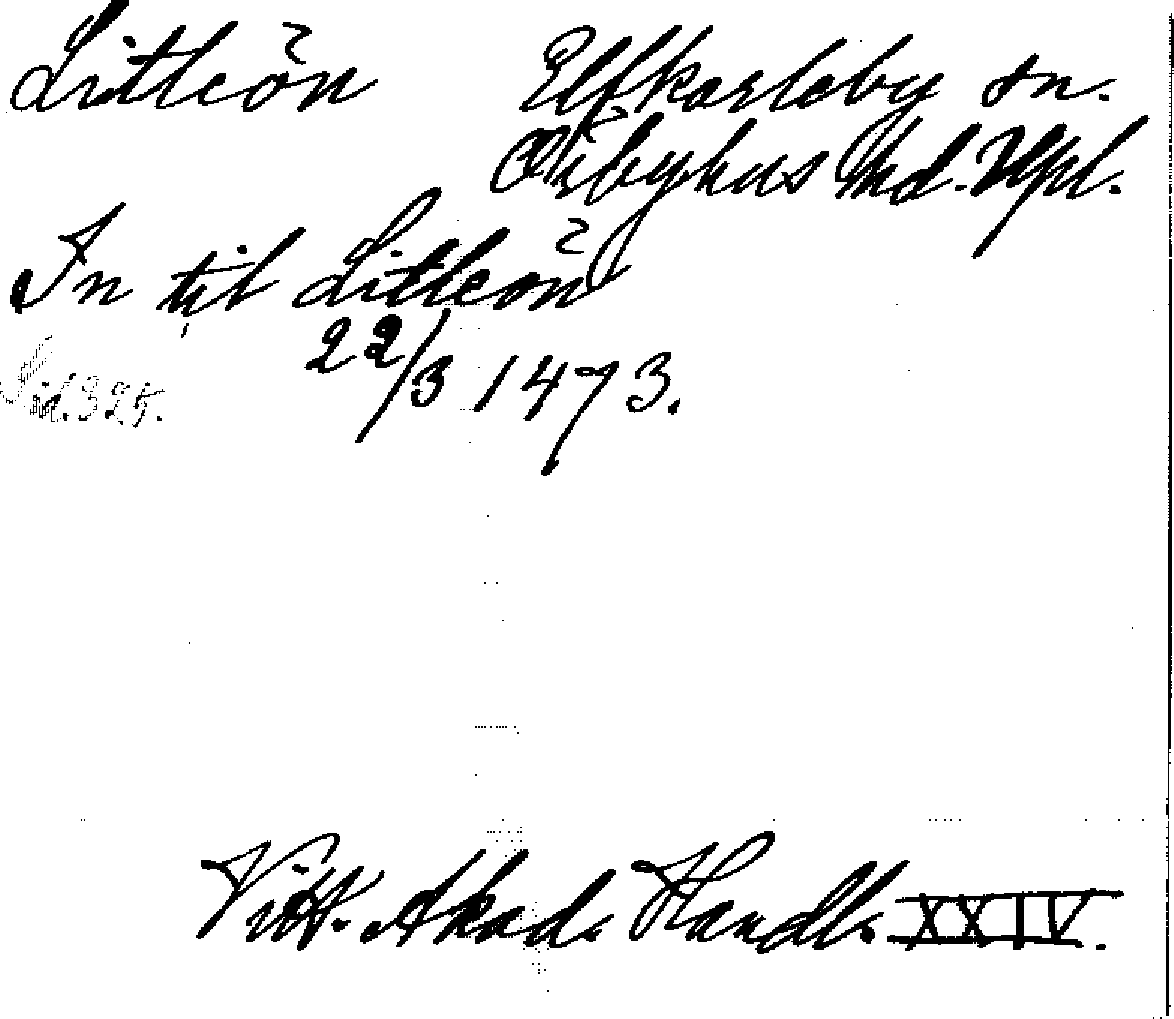 Litleön Elfkarleby sn.
Örbyhus hd. Upl.
In til Litleön
22/3 1473.
Sid. 325.
Vitt. Akad. Handl. XXIV.